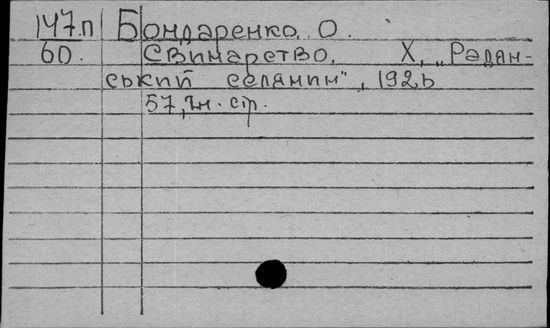 147.п Бондаренко, О.
60. Свинарство. Х., „Радян-
ський селянин", 1926
57, 1 н. стр.